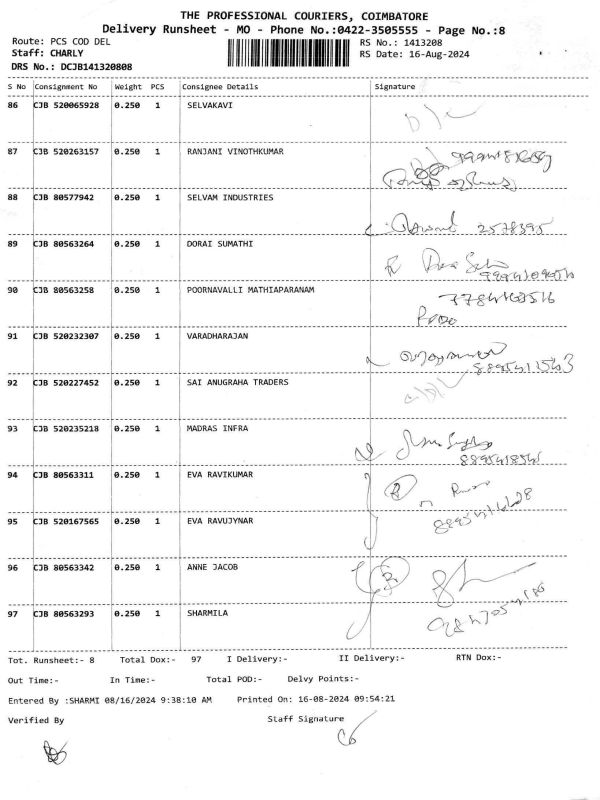 THE PROFESSIONAL COURIERS, COIMBATORE
Delivery Runsheet - MO - Phone No.:0422-3505555 - Page No.:8
Route: PCS COD DEL
RS No.: 1413208
Staff: CHARLY
RS Date: 16-Aug-2024
DRS No.: DCJB141320808
S No Consignment No Weight PCS Consignee Details Signature
86 CJB 520065928 0.250 1 SELVAKAVI
87 CJB 520263157 0.250 1 RANJANI VINOTHKUMAR
88 CJB 80577942 0.250 1 SELVAM INDUSTRIES
2578395
89 CJB 80563264 0.250 1 DORAI SUMATHI
90 CJB 80563258 0.250 1 POORNAVALLI MATHIAPARANAM
91 CJB 520232307 0.250 1 VARADHARAJAN
92 CJB 520227452 0.250 1 SAI ANUGRAHA TRADERS
93 CJB 520235218 0.250 1 MADRAS INFRA
94 CJB 80563311 0.250 1 EVA RAVIKUMAR
95 CJB 520167565 0.250 1 EVA RAVUJYNAR
96 CJB 80563342 0.250 1 ANNE JACOB
97 CJB 80563293 0.250 1 SHARMILA
Tot. Runsheet:- 8 Total Dox:- 97 I Delivery:- II Delivery:- RTN Dox:-
Out Time:- In Time:- Total POD:- Delvy Points:-
Entered By :SHARMI 08/16/2024 9:38:10 AM Printed On: 16-08-2024 09:54:21
Verified By Staff Signature